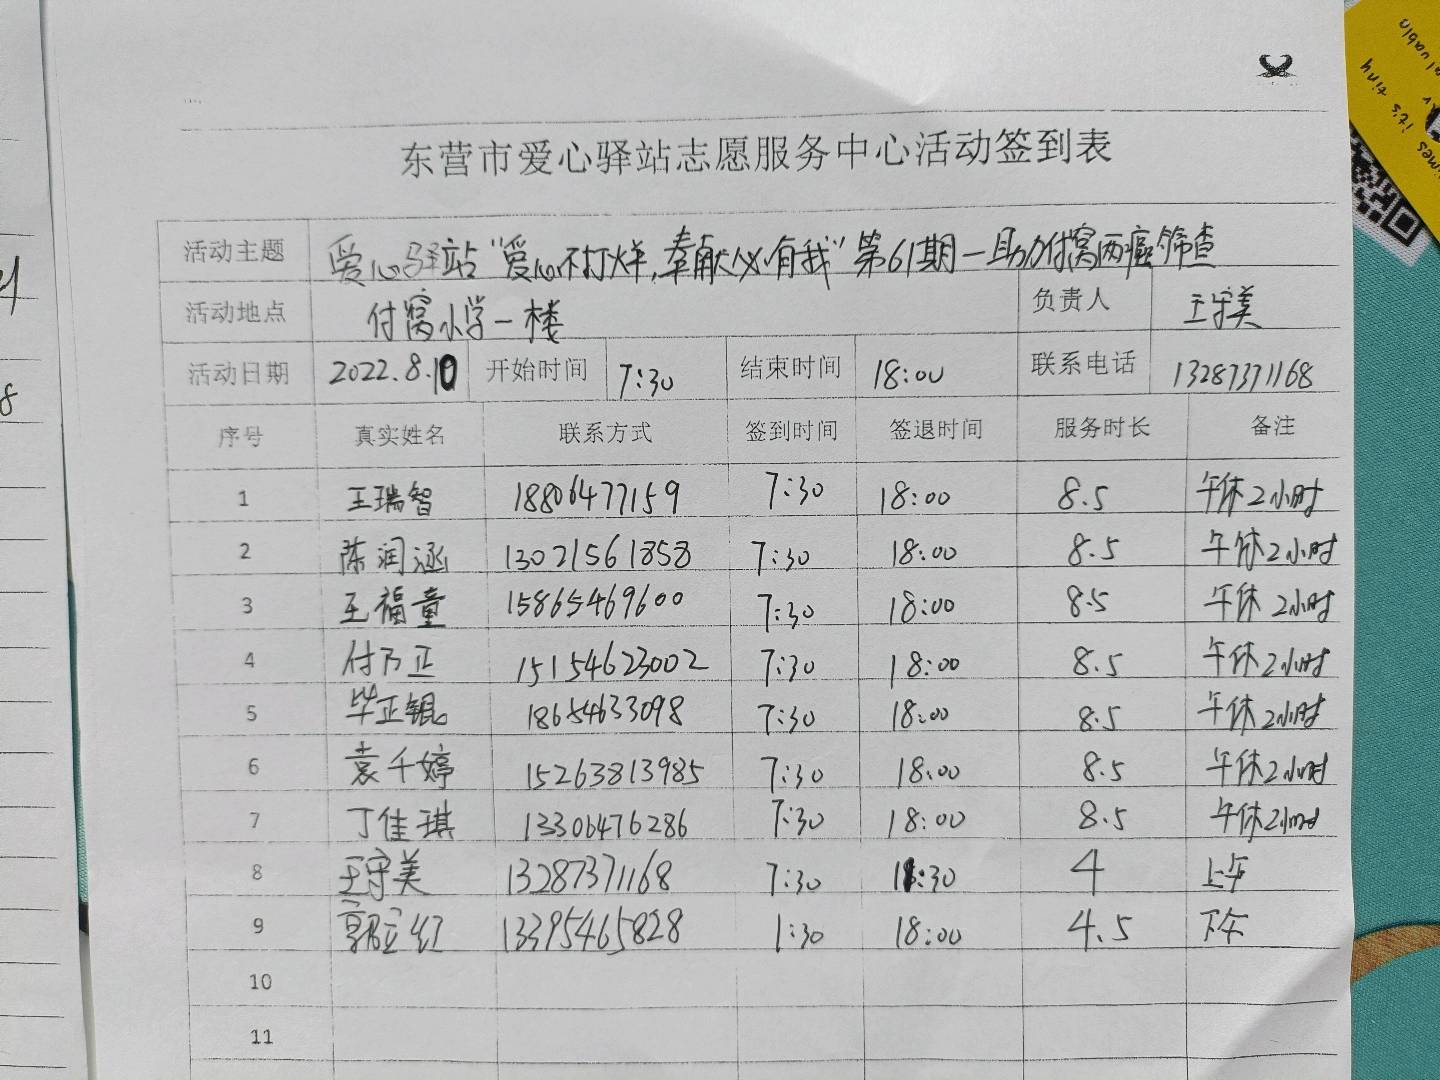 东营市爱心驿站志愿服务中心活动签到表
活动主题 爱心驿站“爱心不打烊,奉献必有我”第61期一助力付窝两癌筛查
活动地点 付窝小学一楼 负责人 王守美
活动日期 2022.8.10 开始时间 7:30 结束时间 18:00 联系电话 13287371168
序号 真实姓名 联系方式 签到时间 签退时间 服务时长 备注
1 王瑞智 18806477159 7:30 18:00 8.5 午休2小时
2 陈润涵 13021561858 7:30 18:00 8.5 午休2小时
3 王福童 15865469600 7:30 18:00 8.5 午休2小时
4 付乃正 15154623002 7:30 18:00 8.5 午休2小时
5 毕正锟 18654633098 7:30 18:00 8.5 午休2小时
6 袁千婷 15263813985 7:30 18:00 8.5 午休2小时
7 丁佳琪 13306476286 7:30 18:00 8.5 午休2小时
8 王守美 13287371168 7:30 11:30 4 上午
9 郭立红 13395465828 1:30 18:00 4.5 下午
10
11
it's tiny